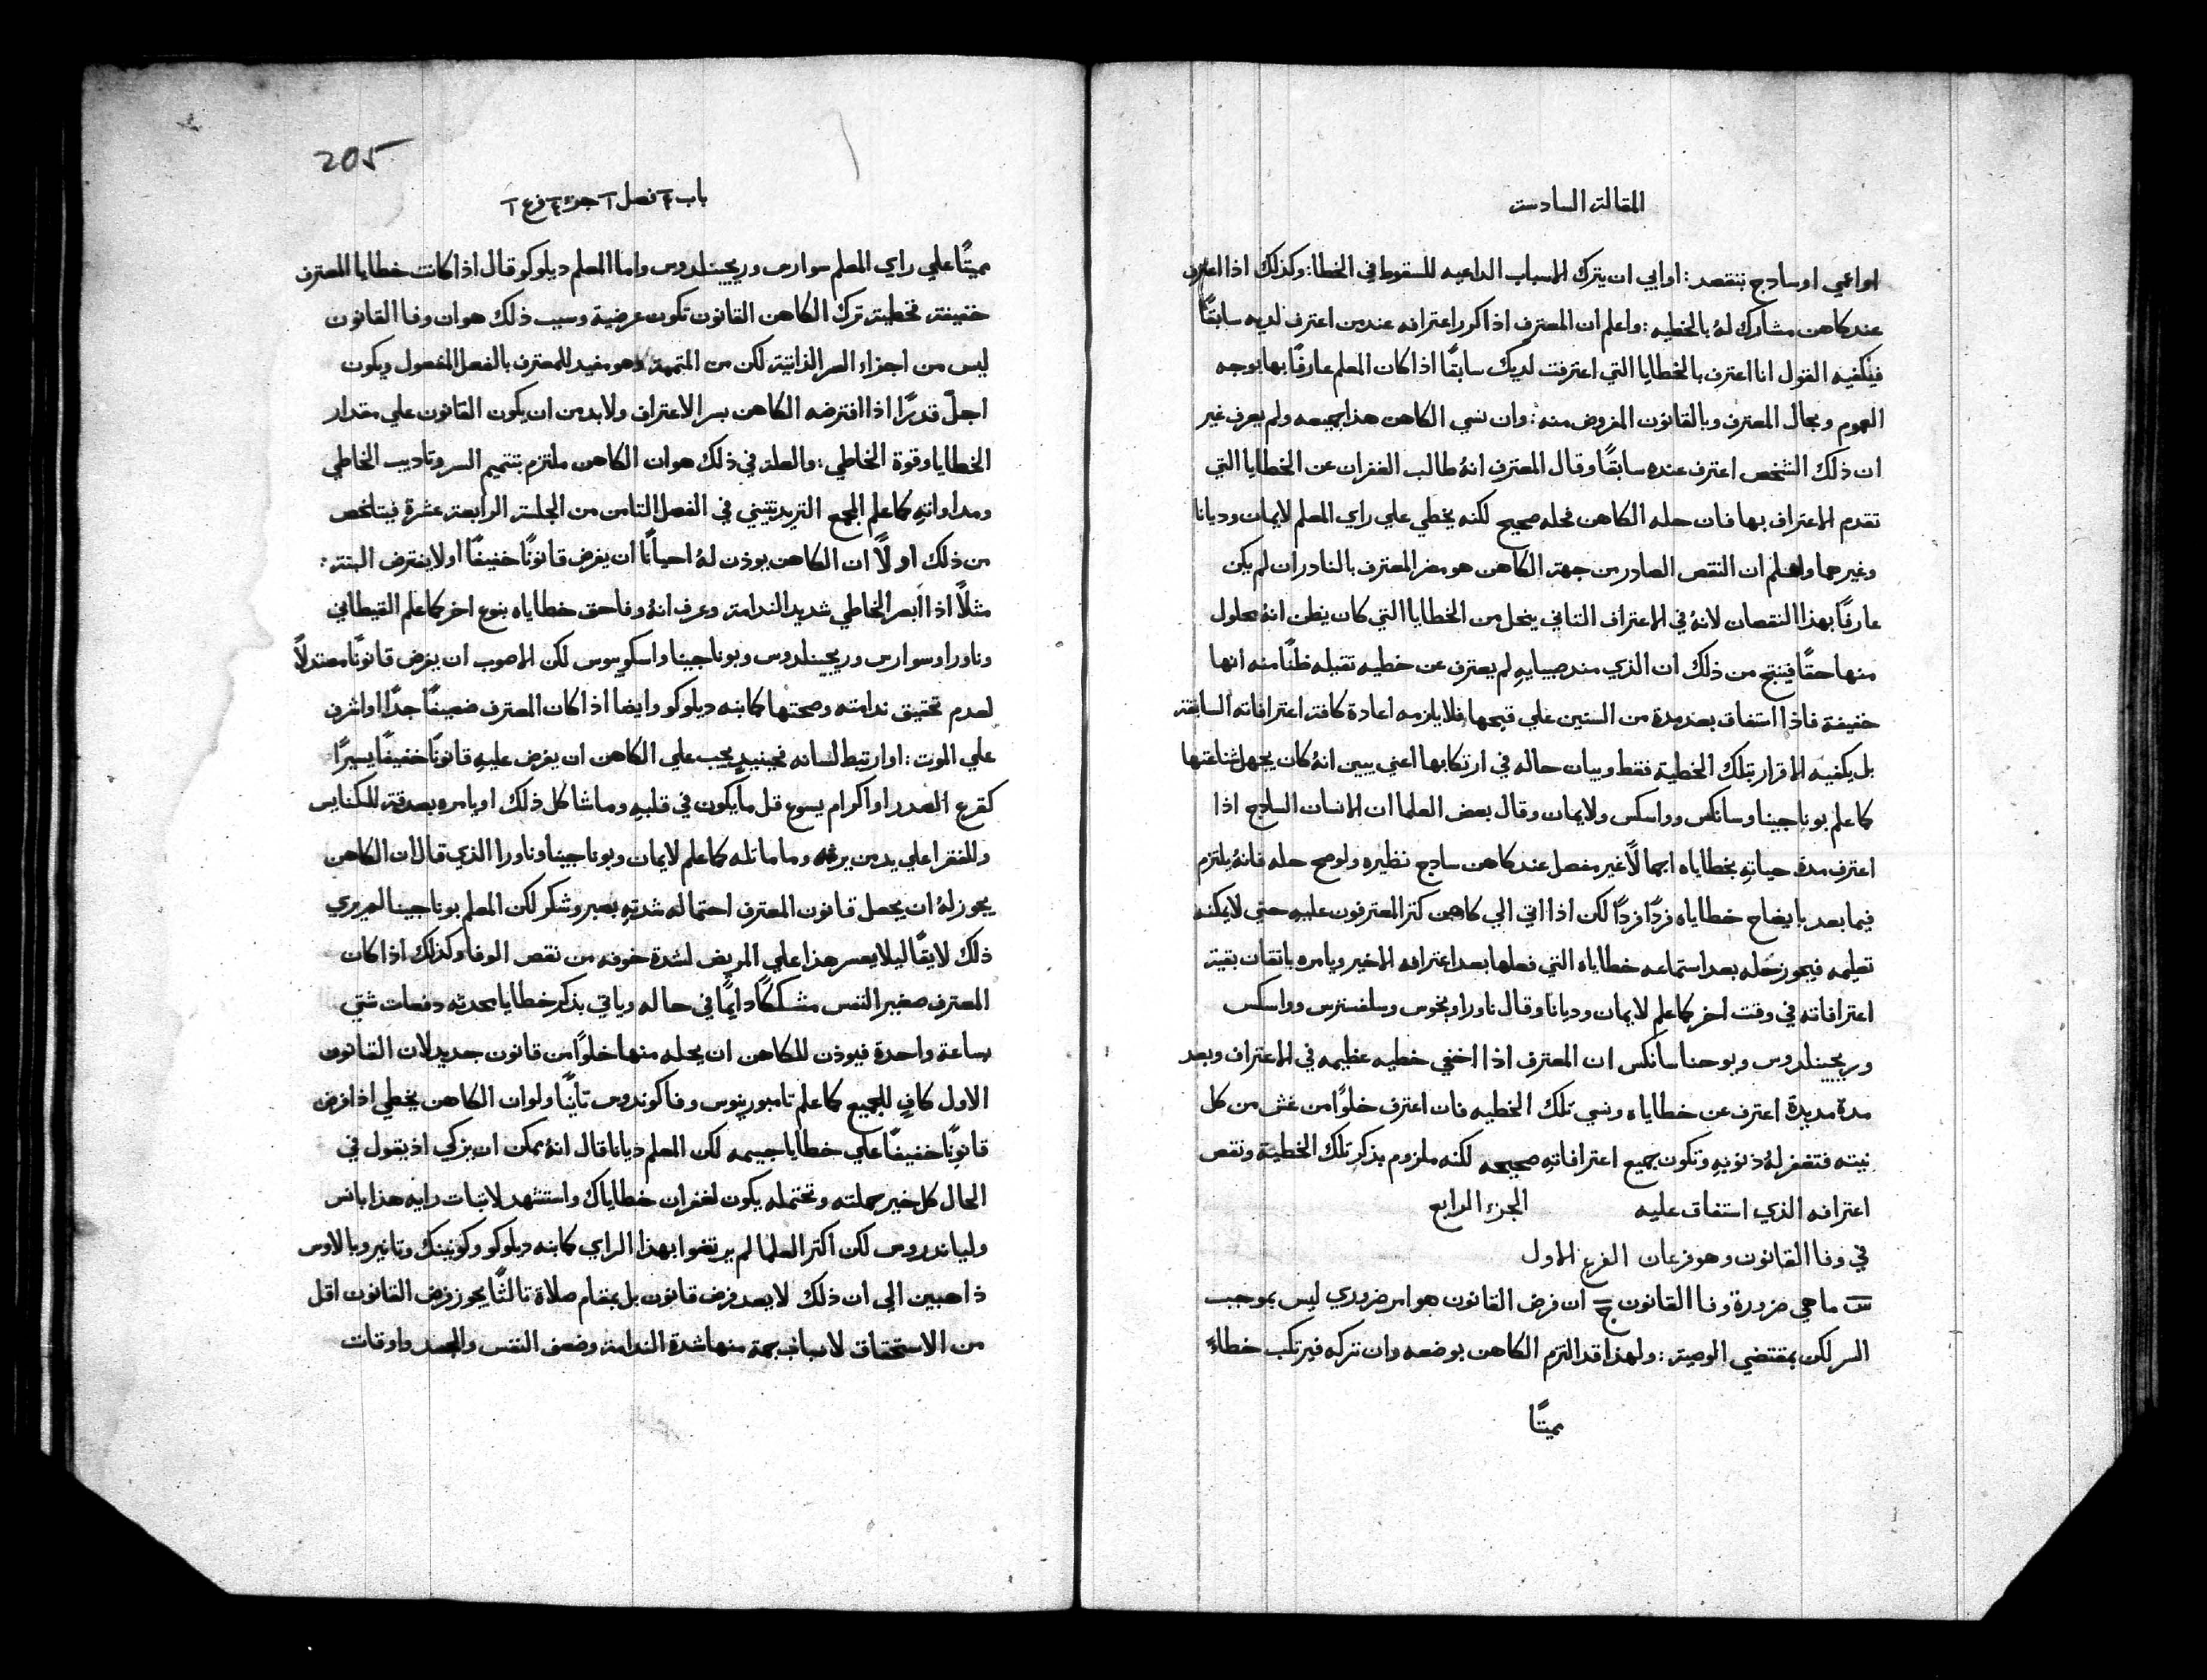 المقالة السادسة
او اعمي او ساذج بنقصد: او ابي ان يترك الاسباب الداعيه للسقوط في الخطا: وكذلك اذا اعترف
عند كاهن مشارك لهُ بالخطيه: واعلم ان المعترف اذا كرر اعترافه عند من اعترف لديه سابقًا
فيكفيه القول انا اعترف بالخطايا التي اعترفت لديك سابقًا اذا كان المعلم عارفًا بها بوجه
العموم وبحال المعترف وبالقانون المفروض منه: وان نسي الكاهن هذا جميعه ولم يعرف غير
ان ذلك الشخص اعترف عنده سابقًا وقال المعترف انهُ طالب الغفران عن الخطايا التي
تقدم الاعتراف بها فان حله الكاهن فحله صحيح لكنه يخطي علي راي المعلم لايمان وديانا
وغيرهما واعلم ان النقص الصادر من جهة الكاهن هو مضر المعترف بالنادر ان لم يكن
عارفًا بهذا النقصان لانهُ في الاعتراف الثاني ينحل من الخطايا التي كان يظن انهُ محلول
منها حقًا فينتج من ذلك ان الذي منذ صبايهِ لم يعترف عن خطيه ثقيله ظنًا منه انها
خفيفة فاذا استفاق بعد مدة من السنين علي قبحها فلا يلزمه اعادة كافة اعترافاته السابقة
بل يكفيه الاقرار بتلك الخطية فقط وبيان حاله في ارتكابها اعني يبين انهُ كان يجهل شناعتها
كما علم بوناجينا وسانكس وواسكس ولايمان وقال بعض العلما ان الانسان الساذج اذا
اعترف مدة حياتهِ بخطاياه اجمالًا غير مفصل عند كاهن ساذج نظيره ولو صح حله فانهُ يلتزم
فيما بعد بايضاح خطاياه فردًا فردًا لكن اذا اتي الي كاهن كثر المعترفون عليهِ حتي لا يمكنه
تعليمه فيجوز حله بعد استماعه خطاياه التي فعلها بعد اعترافه الاخير ويامره باتقان بقية
اعترافاته في وقت اخر كما علم لايمان وديانا وقال ناورا وبخوس وسلفسترس وواسكس
وريجينلدوس ويوحنا سانكس ان المعترف اذا اخفي خطيه عظيمه في الاعتراف وبعد
مدة مديدة اعترف عن خطاياه ونسي تلك الخطيه فان اعترف خلوًا من غش من كل
نيته فتغفر لهُ ذنوبهِ وتكون جميع اعترافاتهِ صحيحه لكنه ملزوم بذكر تلك الخطية ونقص
اعترافه الذي استفاق عليه الجزء الرابع
في وفا القانون وهو فرعان الفرع الاول
س ما هي ضرورة وفا القانون ج ان فرض القانون هو امر ضروري ليس بموجب
السر لكن بمقتضي الوصية: ولهذا قد التزم الكاهن بوضعه وان تركه فيرتكب خطاءً
مميتًا
205
باب فصل جزء فرع
مميتًا علي راي المعلم سوارس وريجينلدوس واما المعلم ديلوكو قال اذا كانت خطايا المعترف
خفيفة فخطية ترك الكاهن القانون تكون عرضية وسبب ذلك هو ان وفا القانون
ليس من اجزاء السر الذاتية لكن من المتممة وهو مفيد للمعترف بالفعل المفعول ويكون
اجلّ قدرًا اذا افترضه الكاهن بسر الاعتراف ولا بد من ان يكون القانون علي مقدار
الخطايا وقوة الخاطي: والعلة في ذلك هو ان الكاهن ملتزم بتتميم السر وتاديب الخاطي
ومداواتهِ كما علم المجمع التريدنتيني في الفصل الثامن من الجلسة الرابعة عشرة فيتلخص
من ذلك اولًا ان الكاهن يوذن لهُ احيانًا ان يفرض قانونًا خفيفًا او لا يفترض البتة:
مثلًا اذا ابصر الخاطي شديد الندامة وعرف انهُ وفا حق خطاياه بنوع اخر كما علم القيطاني
وناورا وسوارس وريجينلدوس وبوناجينا واسكوسوس لكن الاصوب ان يفرض قانونًا معتدلًا
لعدم تحقيق ندامته وصحتها كما بنه ديلوكو وايضا اذا كان المعترف ضعيفًا جدًا او اشرف
علي الموت: او ارتبط لسانه فحينيذٍ يجب علي الكاهن ان يفرض عليهِ قانونًا خفيفًا يسيرًا
كقرع الصدر او اكرام يسوع قل ما يكون في قلبهِ وما شاكل ذلك او يامره بصدقة للكنايس
وللفقرا علي يد من يرغبه وما ماثله كما علم لايمان وبوناجينا وناورا الذي قال ان الكاهن
يجوز لهُ ان يجعل قانون المعترف احتماله شدتهِ بصبر وشكر لكن المعلم بوناجينا لم يري
ذلك لايقًا ليلا يعسر هذا علي المريض لشدة خوفه من نقص الوفا وكذلك اذا كان
المعترف صغير النفس مشككًا دايمًا في حاله وياتي بذكر خطايا محدثه دفعات شتي
بساعة واحدة فيوذن للكاهن ان يحله منها خلوًا من قانون جديد لان القانون
الاول كافٍ للجميع كما علم تامبورينوس وفاكوندوس ثانيًا ولو ان الكاهن يخطي اذا فرض
قانونًا خفيفًا علي خطايا جسيمه لكن المعلم ديانا قال انهُ يمكن ان يزكي اذ يقول في
الحال كل خير عملته وتحتمله يكون لغفران خطاياك واستشهد لاثبات رايه هذا بانس
ولياندروس لكن اكثر العلما لم يرتضوا بهذا الراي كما بنه ديلوكو وكونينك وتانير وبالاوس
ذاهبين الي ان ذلك لا يعد فرض قانون بل بمقام صلاة ثالثًا يجوز فرض القانون اقل
من الاستحقاق لاسباب جمة منها شدة الندامة وضعف النفس والجسد واوقات